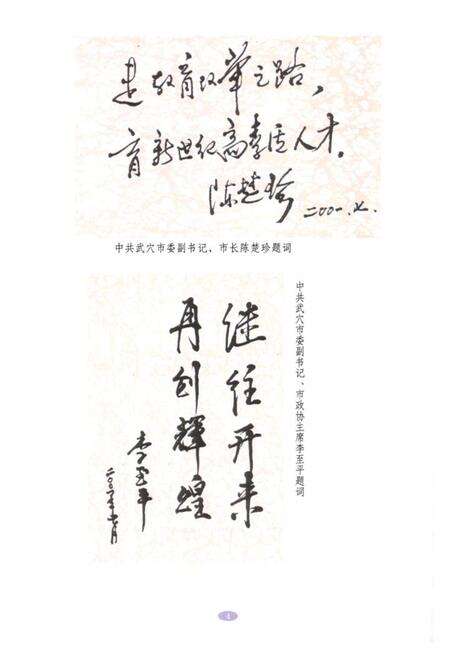 走教育改革之路，
育新世纪高素质人才。
陈楚珍 二〇〇一.九.
中共武穴市委副书记，市长陈楚珍题词
继往开来
再创辉煌
李至平
二〇〇一年七月
中共武穴市委副书记、市政协主席李至平题词
4